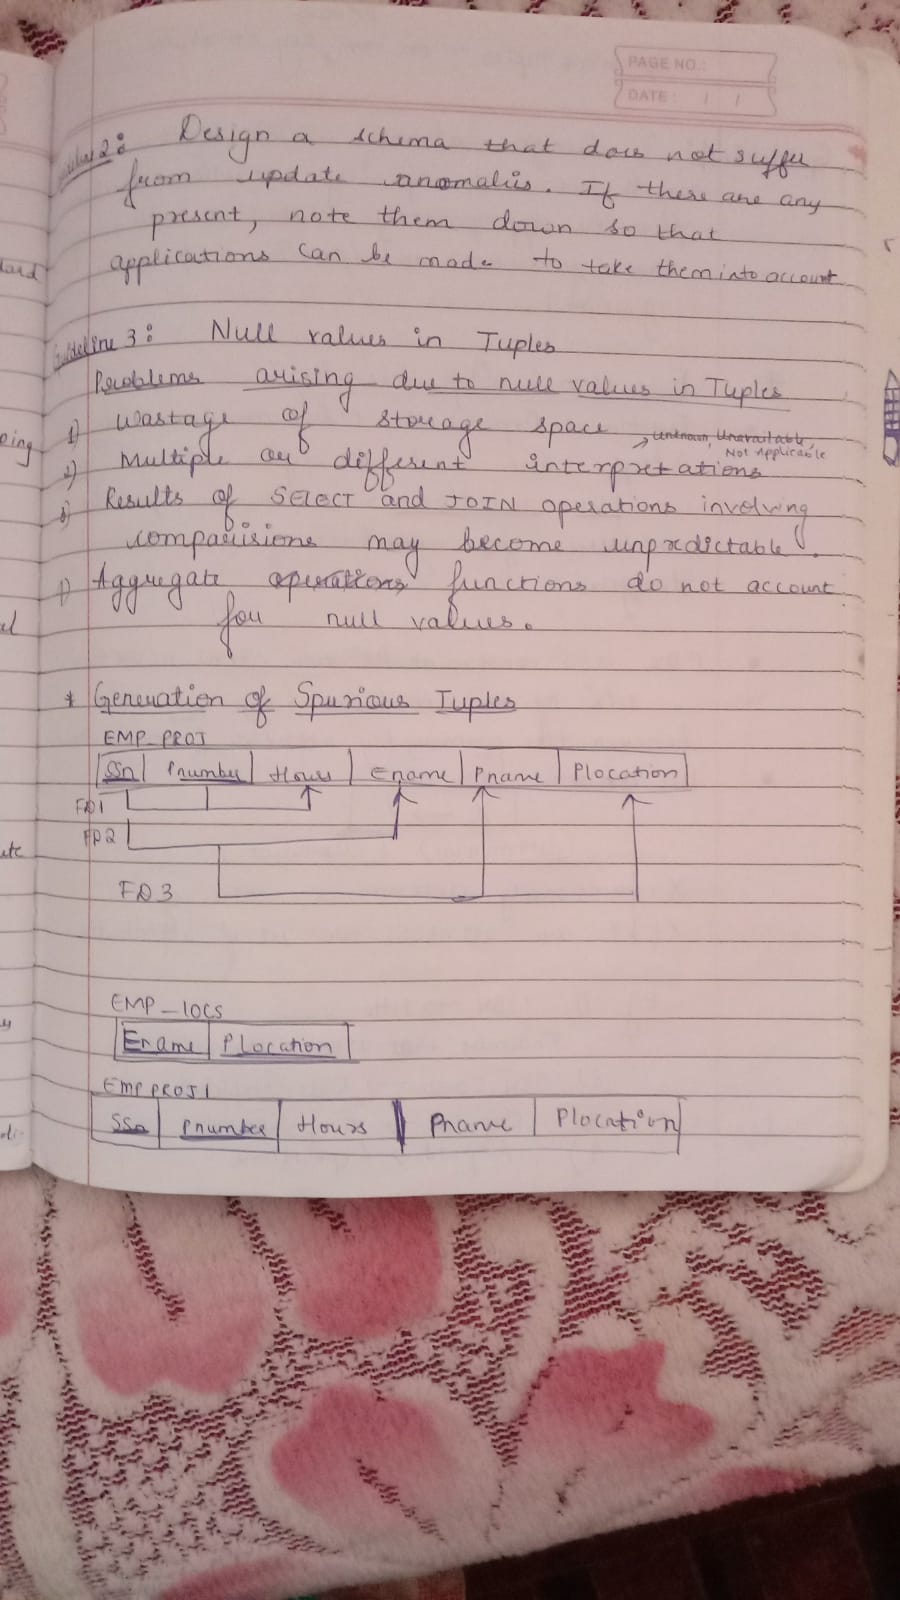 PAGE NO.:
DATE: / /
2: Design a schema that does not suffer
from update anomalies. If there are any
present, note them down so that
applications can be made to take them into account
Guideline 3: Null values in Tuples
Problems arising due to null values in Tuples
1) Wastage of storage space
→ Unknown, Unavailable,
Not Applicable
2) Multiple or different interpretations
3) Results of SELECT and JOIN operations involving
comparisions may become unpredictable.
Aggregate operations functions do not account
for null values.
* Generation of Spurious Tuples
EMP_PROJ
SSn Pnumber Hours Ename Pname Plocation
FD1
FD2
FD3
EMP_LOCS
Ename Plocation
EMP PROJ1
SSn Pnumber Hours Pname Plocation